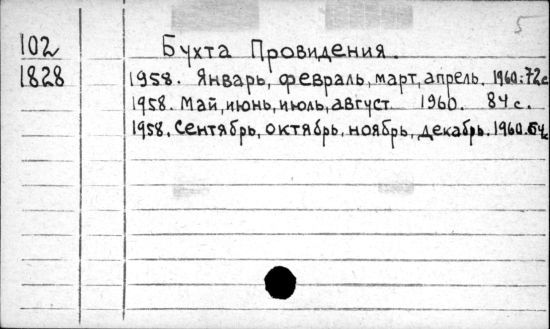 5
102 Бухта Провидения.
1828 1958. Январь, февраль, март, апрель. 1960. 72с
1958. Май, июнь, июль, август 1960. 84с.
1958. Сентябрь, октябрь, ноябрь, декабрь. 1960. 64с